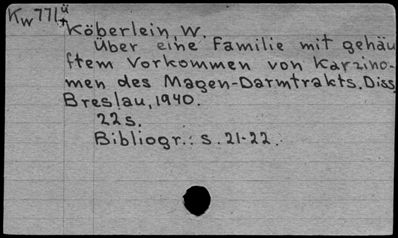 Kw 771 ü
Köberlein, W.
Über eine Familie mit gehäu
ftem Vorkommen von Karzino-
men des Magen-Darmtrakts. Diss.
Breslau, 1940.
22 s.
Bibliogr.: s. 21-22.